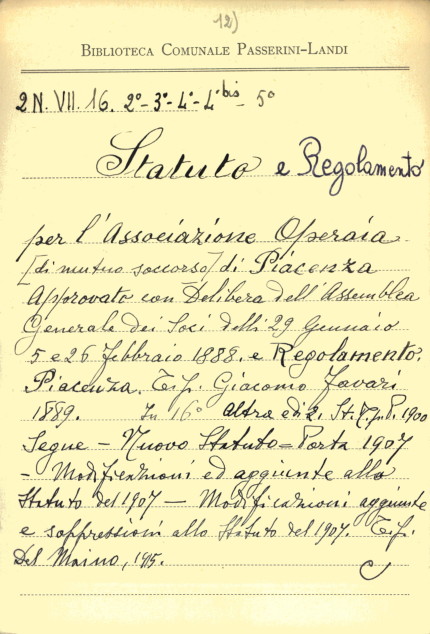 12)
BIBLIOTECA COMUNALE PASSERINI-LANDI
2N. VII. 16. 2°-3°-4°-4°bis-5°
Statuto e Regolamento
per l'Associazione Operaia
[di mutuo soccorso] di Piacenza
Approvato con Delibera dell'Assemblea
Generale dei Soci delli 29 Gennaio
5 e 26 Febbraio 1888. e Regolamento.
Piacenza. Tip. Giacomo Favari
1889. In 16° altra ediz. 1900
Segue - Nuovo Statuto = Porta 1907
- Modificazioni ed aggiunte allo
Statuto del 1907 — Modificazioni aggiunte
e soppressioni allo Statuto del 1907. Tip.
Del Maino, 1915.